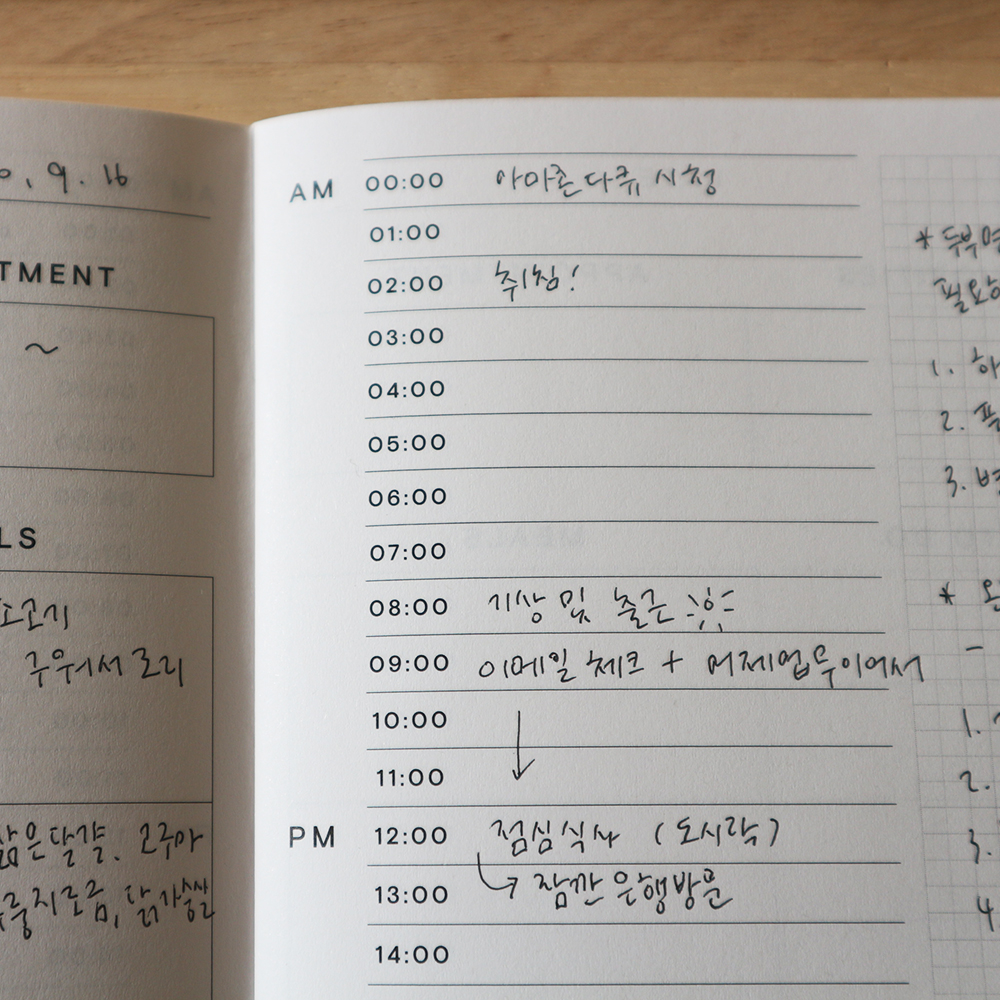 9. 16
TMENT
~
LS
소고기
구워서
삶은달걀.
닭가슴살
AM
00:00 아마존다큐 시청
01:00
02:00 취침!
03:00
04:00
05:00
06:00
07:00
08:00 기상 및 출근
09:00 이메일 체크 + 어제업무이어서
10:00
11:00
PM
12:00 점심식사 (도시락)
13:00 잠깐 은행방문
14:00
* 두부
필요한
1.
2.
3.
*
-
1.
2.
3.
4.